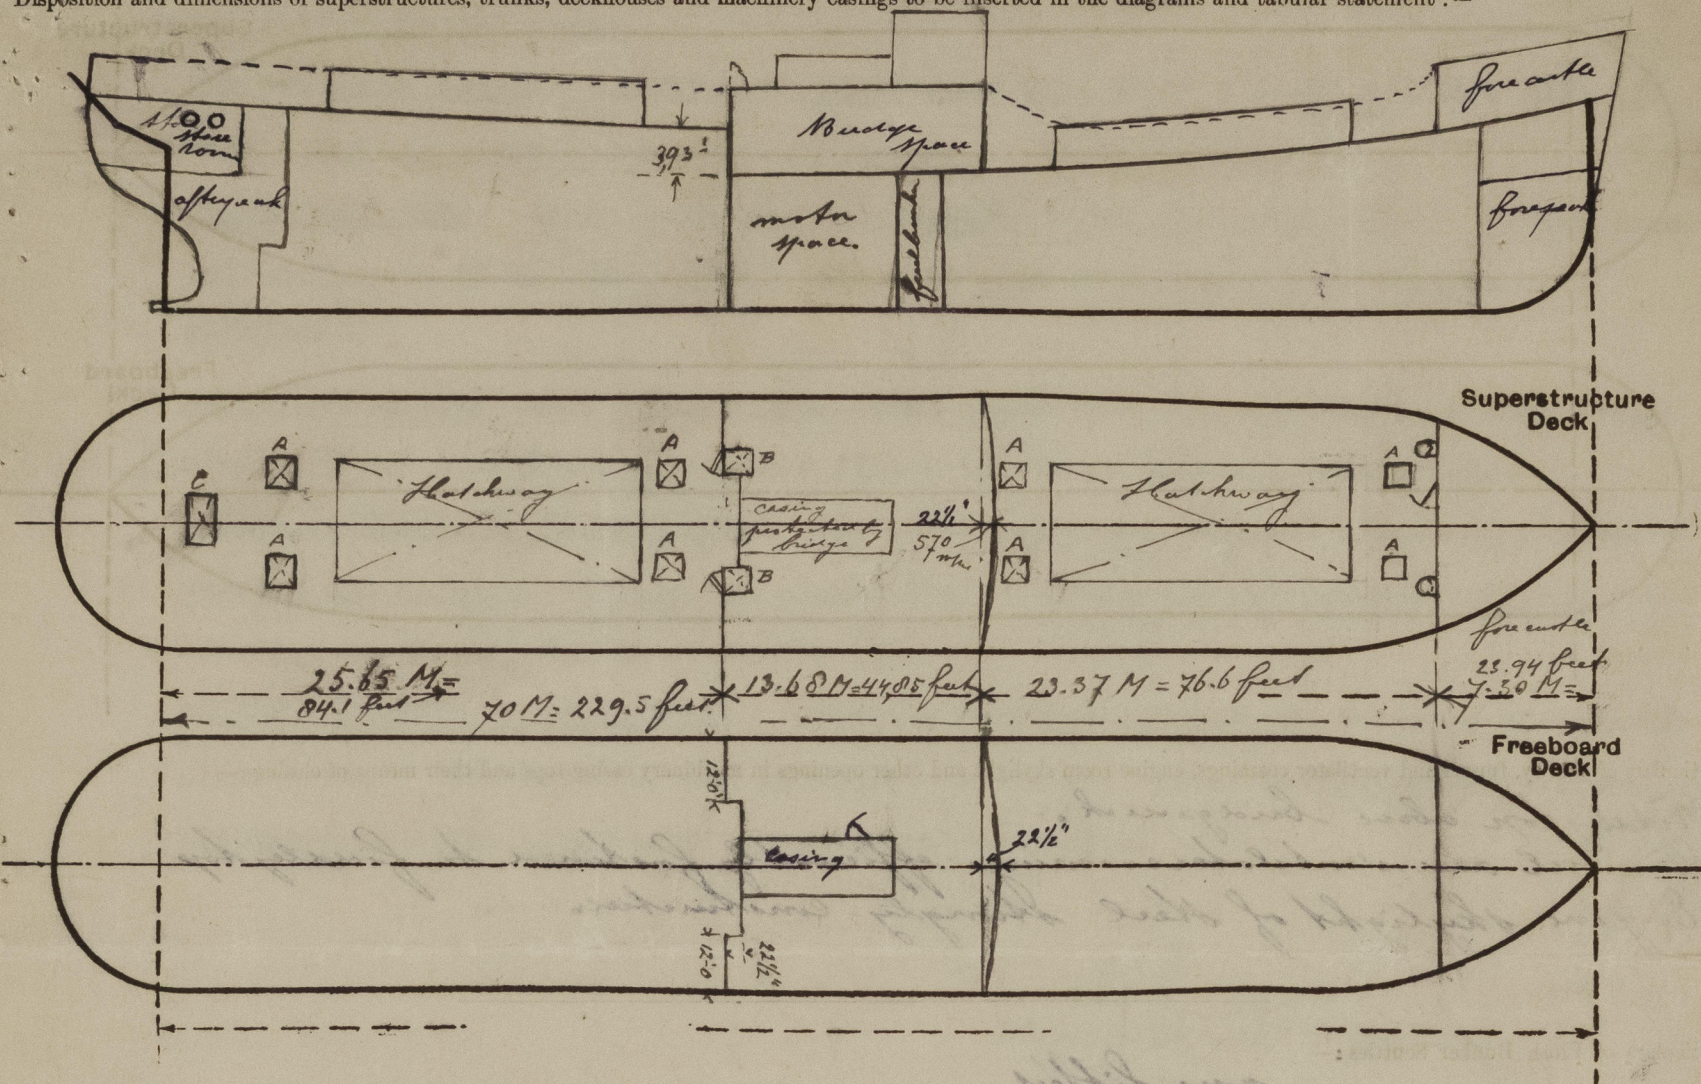 Disposition and dimensions of superstructures, trunks, deckhouses and machinery casings to be inserted in the diagrams and tabular statement :—
forecastle
store
room
3,93'
Bridge
space
afterpeak
motor
space.
fuelbunker
forepeak
Superstructure
Deck
A
A
A
A
B
C
Hatchway
Hatchway
casing
protected by
bridge
22½"
570
m/m
A
A
A
A
B
forecastle
25.65 M =
84.1 feet
70 M = 229.5 feet
13.68 M=44,85 feet
23.37 M = 76.6 feet
23.94 feet
7.30 M=
Freeboard
Deck
12'.0"
casing
22½"
12'.0
22½"